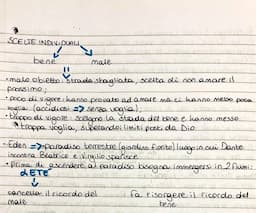 SCELTE INDIVIDUALI
bene male
• malo obietto → strada sbagliata, scelta di non amare il
prossimo;
• poco di vigore: hanno provato ad amare ma ci hanno messo poca
voglia (accidiosi => senza voglia);
• troppo di vigore: scelgono la strada del bene e hanno messo
troppa voglia, superando i limiti posti da Dio
• Eden => paradiso terrestre (giardino fonte) luogo in cui Dante
incontra Beatrice e Virgilio sparisce.
• Prima di ascendere al paradiso bisogna immergersi in 2 fiumi:
LETE
cancella il ricordo del Fa risorgere il ricordo del
male bene